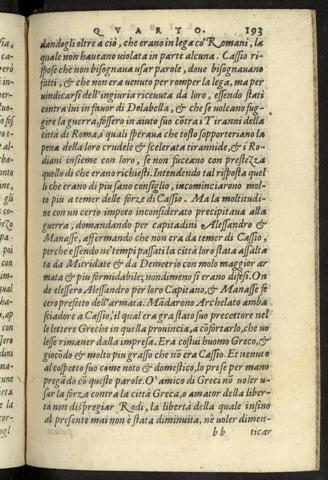 QVARTO. 193
dandogli oltre a ciò, che erano in lega co' Romani, la
quale non haueano violata in parte alcuna. Cassio ri-
spose che non bisognaua usar parole, doue bisognauano
fatti, & che non era uenuto per romper la lega, ma per
uindicarsi dell'ingiuria riceuuta da loro, essendo stati
contra lui in fauor di Dolabella, & che se uoleano fug-
gire la guerra, fossero in aiuto suo cōtra i Tiranni della
città di Roma, quali speraua che tosto sopporteriano la
pena della loro crudele & scelerata tirannide, & i Ro-
diani insieme con loro, se non faceano con prestezza
quello di che erano richiesti. Intendendo tal risposta quel
li che erano di piu sano consiglio, incominciarono mol-
to piu a temer delle forze di Cassio. Ma la moltitudi-
ne con un certo impeto inconsiderato precipitaua alla
guerra, domandando per capitadini Alessandro &
Manasse, affermando che non era da temer di Cassio,
perche essendo ne' tempi passati la città loro stata assalta
ta da Mitridate & da Demetrio con molto maggior ar
mata & piu formidabile; nondimeno si erano difesi. On
de elessero Alessandro per loro Capitano, & Manasse fe
cero prefetto dell'armata. Mādarono Archelato amba
sciadore a Cassio, il qual era gia stato suo precettore nel
le lettere Greche in quella prouincia, a cōfortarlo, che uo
lesse rimaner dalla impresa. Era costui huomo Greco, &
giocōdo & molto piu grasso che nō era Cassio. Et uenuto
al cospetto suo come noto & domestico, lo prese per mano
pregādo cō queste parole. O' amico di Greci nō uoler u-
sar la forza contra la città Greca, o amator della liber-
tà non dispregiar Rodi, la libertà della quale insino
al presente mai non è stata diminuita, nè uoler dimen-
bb ticar